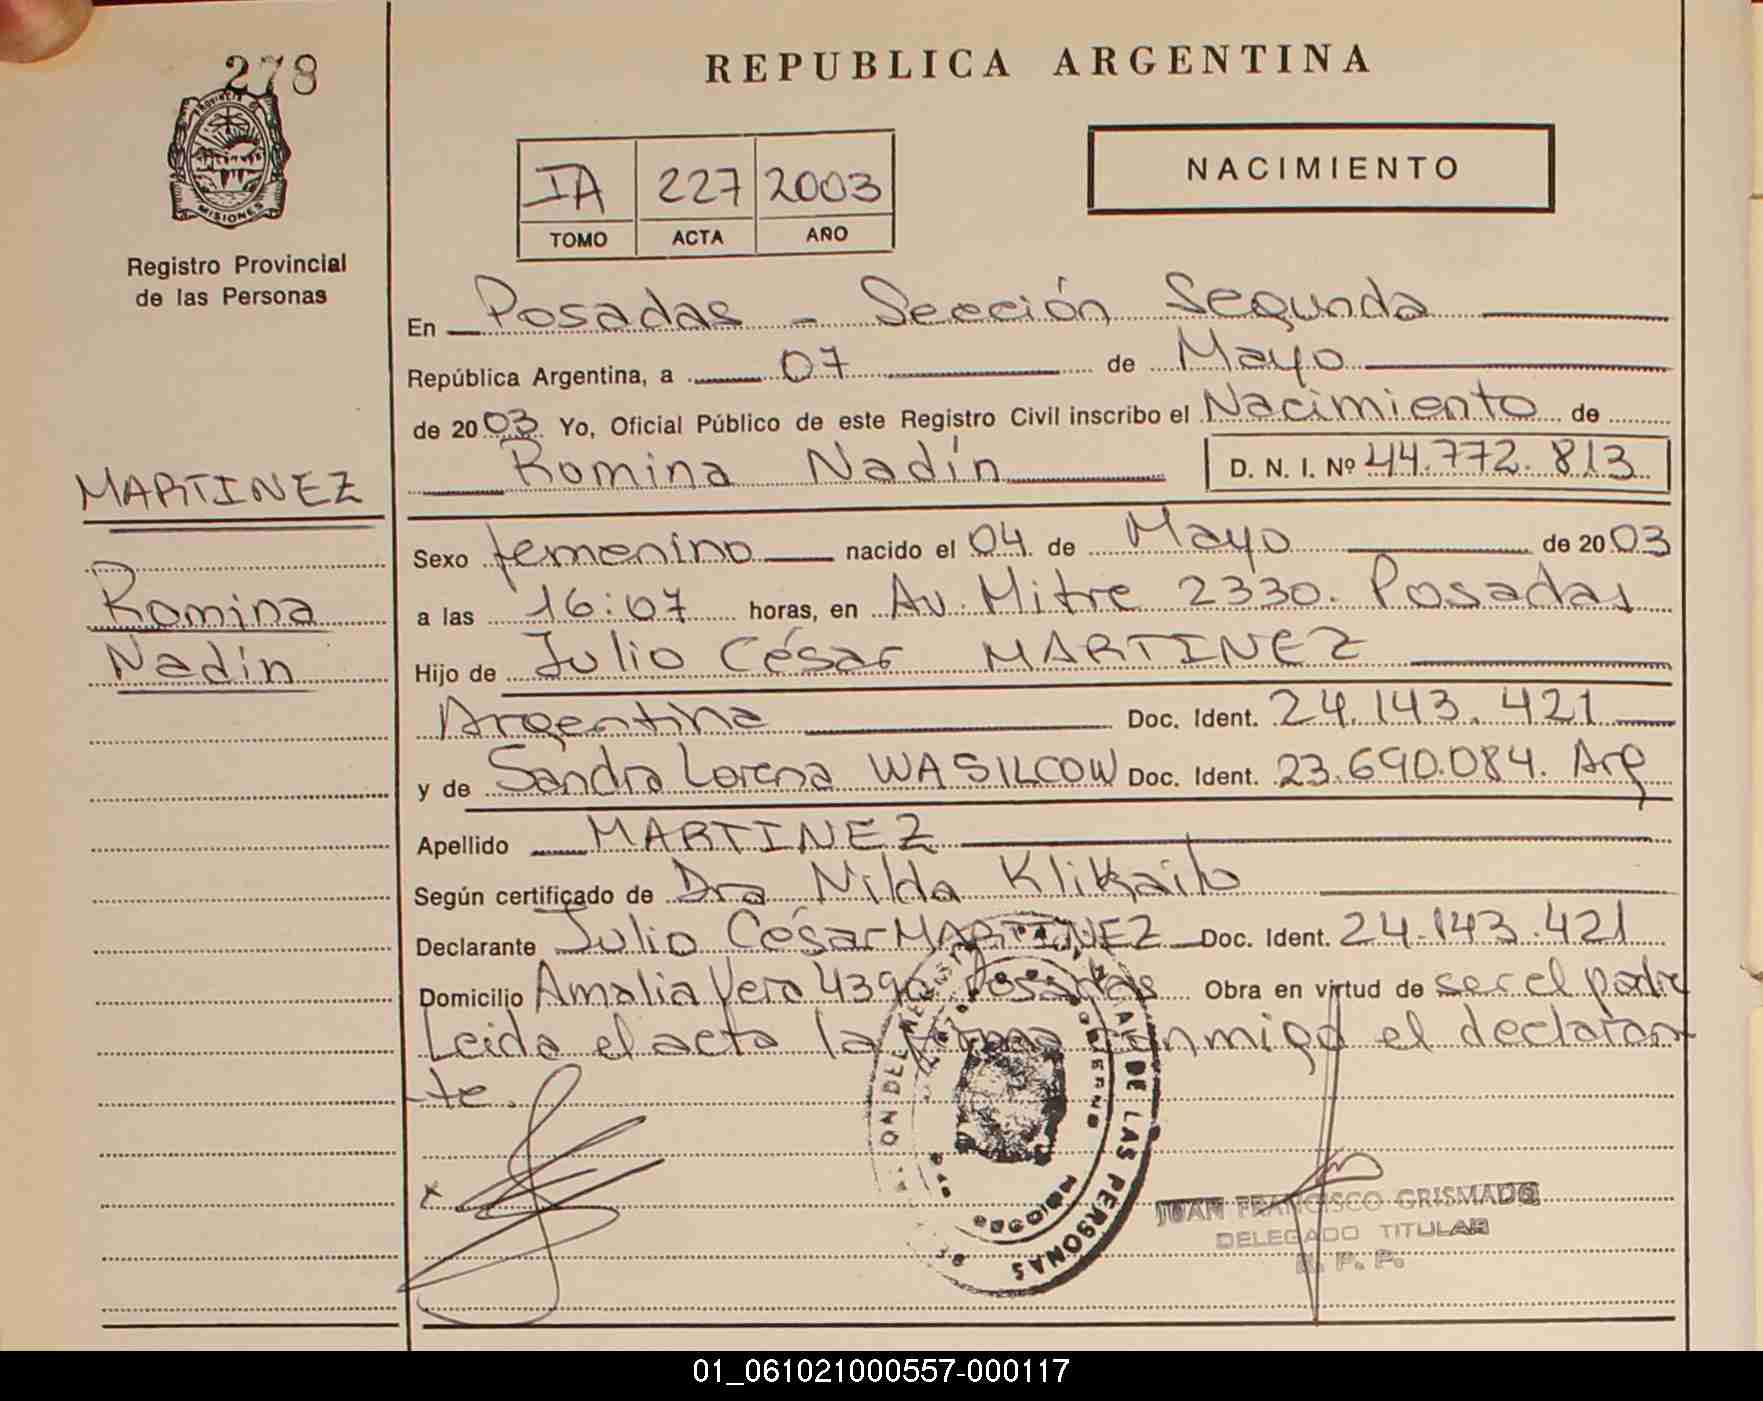 278
REPUBLICA ARGENTINA
PROVINCIA DE
MISIONES
Registro Provincial
de las Personas
IA 227 2003
TOMO ACTA AÑO
NACIMIENTO
En Posadas - Sección Segunda
República Argentina, a 07 de Mayo
de 2003 Yo, Oficial Público de este Registro Civil inscribo el Nacimiento de
Romina Nadín D. N. I. Nº 44.772.813
MARTINEZ
Romina
Nadín
Sexo femenino nacido el 04 de Mayo de 2003
a las 16:07 horas, en Av. Mitre 2330. Posadas
Hijo de Julio César MARTINEZ
Argentina Doc. Ident. 24.143.421
y de Sandra Lorena WASILCOW Doc. Ident. 23.690.084. Arg
Apellido MARTINEZ
Según certificado de Dra Nilda
Declarante Julio César MARTINEZ Doc. Ident. 24.143.421
Domicilio Amalia Vera 4390 Posadas Obra en virtud de ser el padre
Leida el acta la firma conmigo el declaran
-te.
x
DE LAS PERSONAS
JUAN FRANCISCO GRISMADO
DELEGADO TITULAR
R. P. P.
01_061021000557-000117